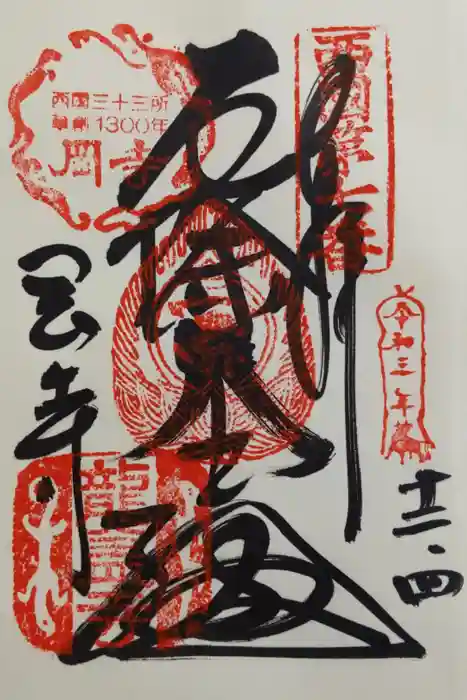 西国第七番
奉拝
令和三年
十二・四
厄除大悲殿
西国三十三所
草創1300年
岡寺
岡寺
龍蓋寺